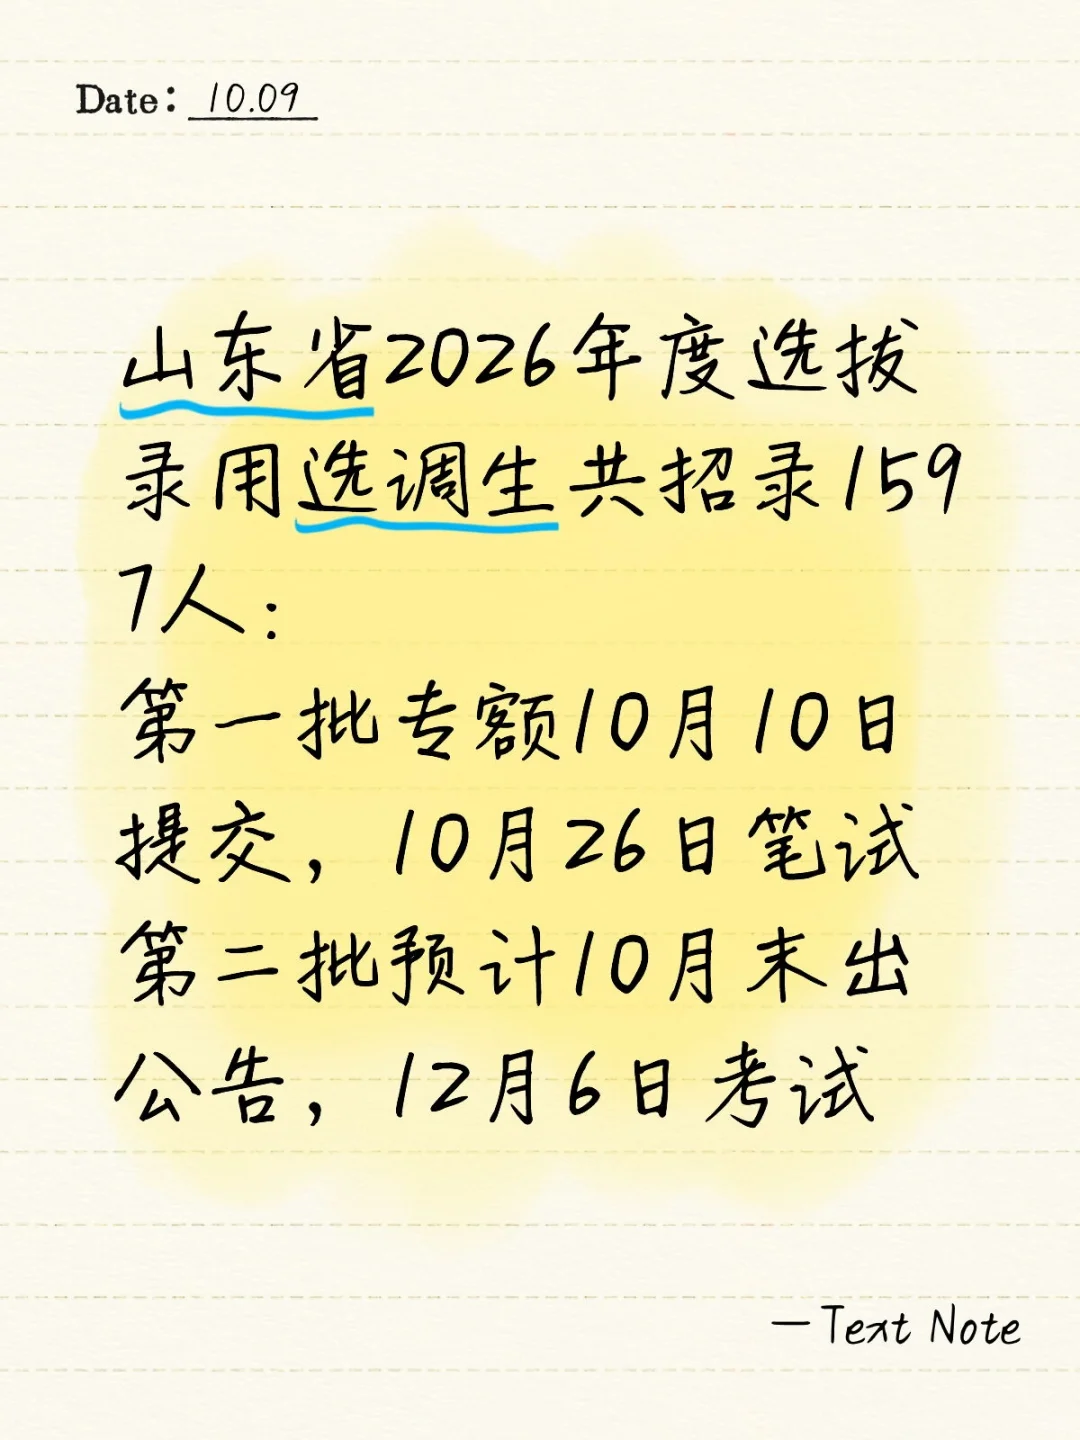 Date: 10.09
山东省2026年度选拔
录用选调生共招录159
7人：
第一批专额10月10日
提交，10月26日笔试
第二批预计10月末出
公告，12月6日考试
—Text Note